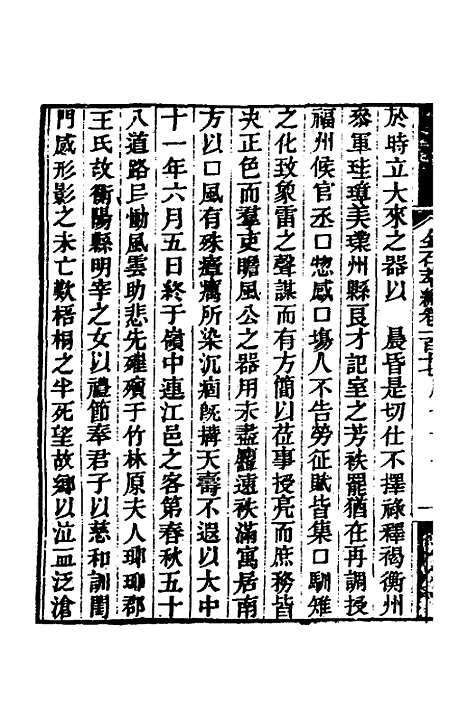 於時立大來之器以　晨昏是切仕不擇祿釋褐衡州
叅軍珪璋美璞州縣良才記室之芳秩罷猶在再調授
福州候官丞口惣感口塲人不告勞征賦皆集口馴雉
之化致象雷之聲謀而有方簡以莅事授亮而庶務皆
夬正色而羣吏瞻風公之器用未盡靈遠秩滿寓居南
方以口風有殊瘴癘所染沉痼旣搆天壽不遐以大中
十一年六月五日終于嶺中連江邑之客第春秋五十
八道路皆慟風雲助悲先殯于竹林原夫人瑯瑘郡
王氏故衡陽縣明宰之女以禮節奉君子以慈和訓閨
門感形影之未亡歎梧桐之半死望故鄉以泣血泛滄
金石萃編卷一百十七